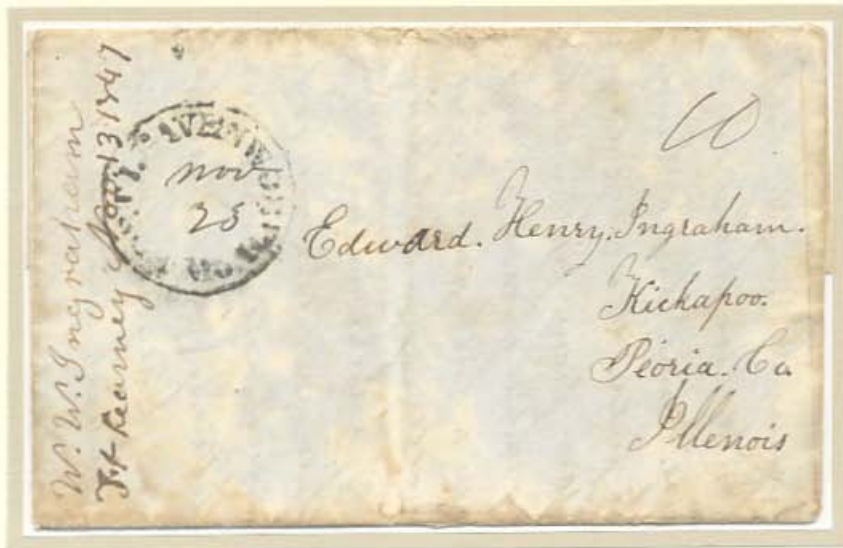 W. W. Ingraham
Ft Kearney Nov 13 1847
Nov
25
10
Edward. Henry. Ingraham.
Kickapoo.
Peoria. Co
Illenois